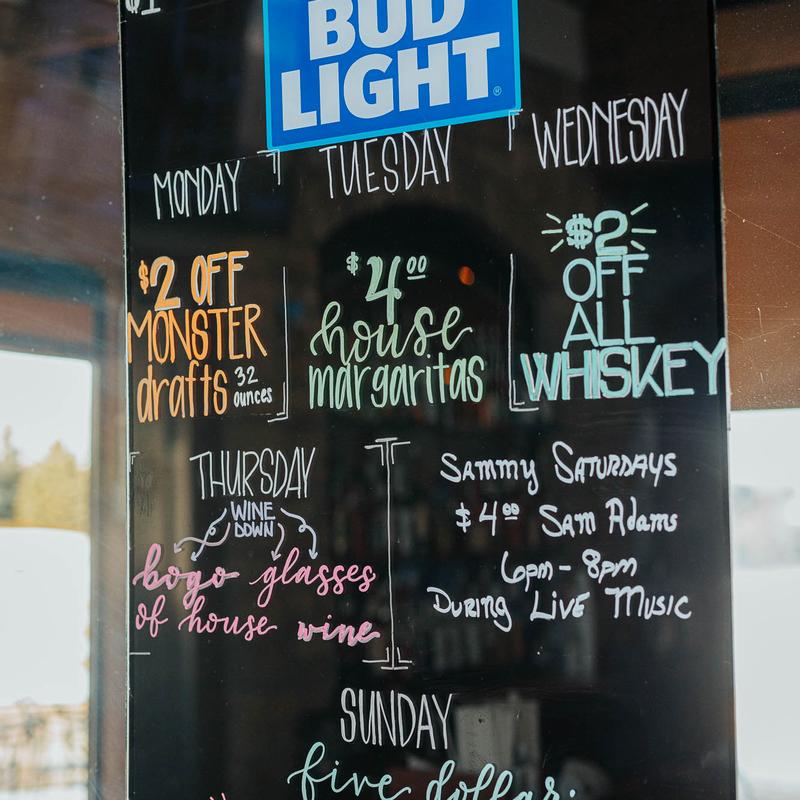 $1
BUD
LIGHT®
MONDAY
$2 OFF
MONSTER
drafts 32 ounces
TUESDAY
$4.00
house
margaritas
WEDNESDAY
$2
OFF
ALL
WHISKEY
THURSDAY
WINE
DOWN
bogo glasses
of house wine
SAMMY SATURDAYS
$4.00 SAM Adams
6pm - 8pm
DURING LIVE MUSIC
SUNDAY
five dollar